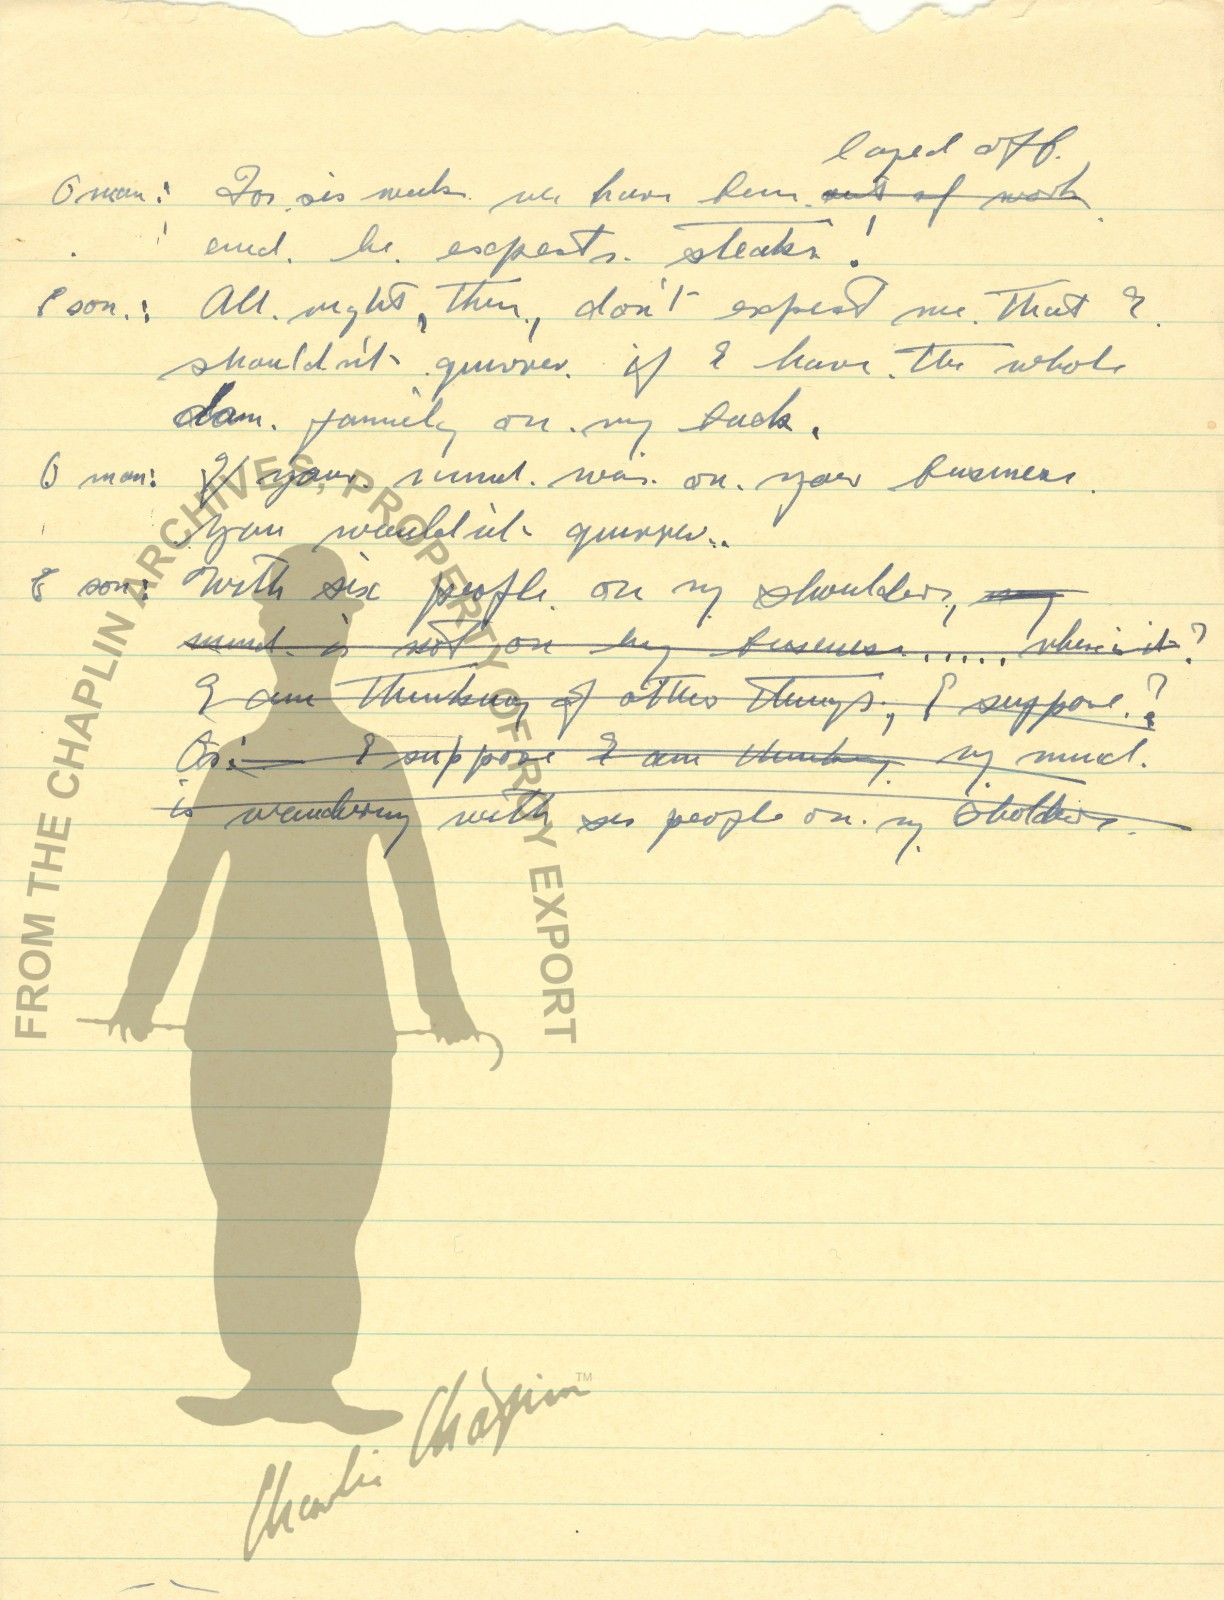 layed off.
O man: For six weeks we have been out of work
and he expects steaks!
E son.: All right, then, don't expect me. That I
shouldn't quarrel if I have the whole
dam family on my back.
O man: If your mind was on your business
you wouldn't quarrel..
E son: With six people on my shoulders, my
mind is not on my business..... where is it?
I am thinking of other things, I suppose.?
I suppose I am thinking my mind
is wandering with six people on my sholders.
FROM THE CHAPLIN ARCHIVES, PROPERTY OF ROY EXPORT
Charlie Chaplin™